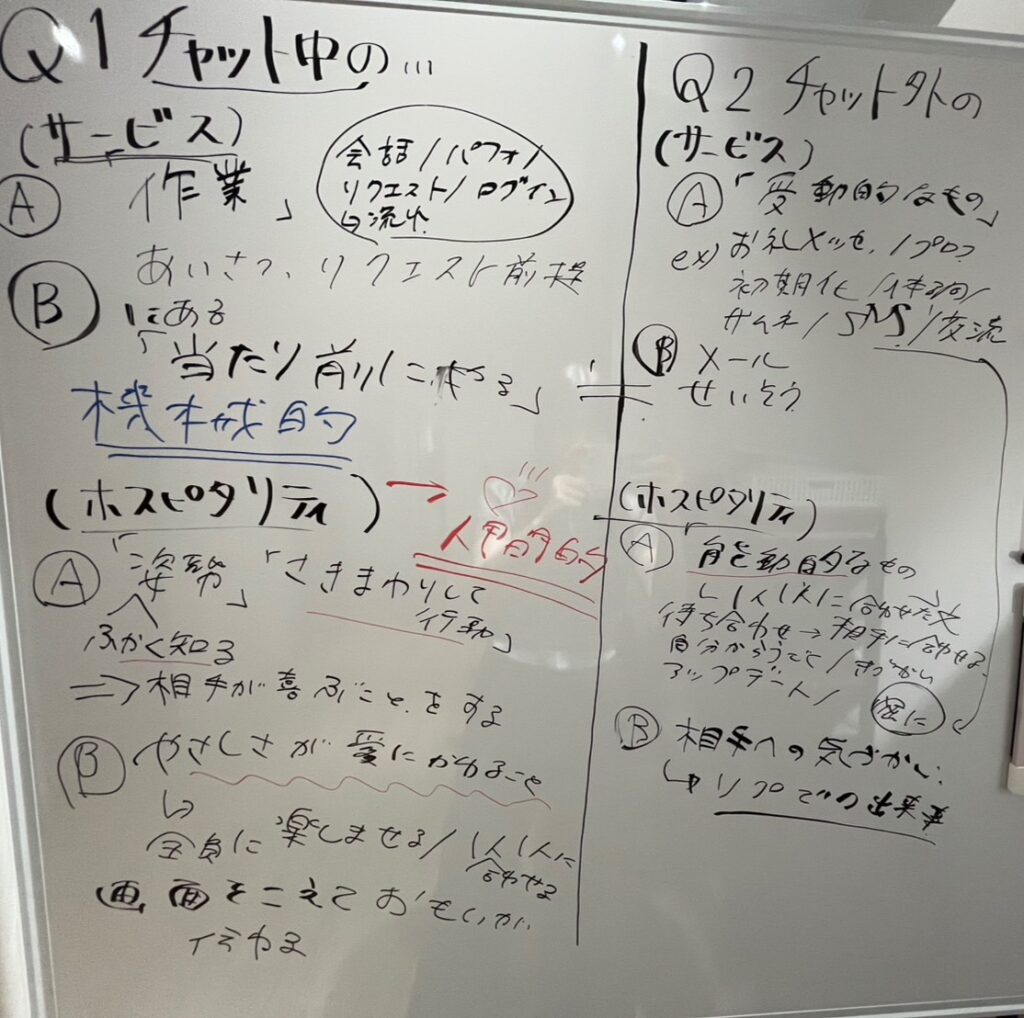 Q1 チャット中の...
(サービス)
Ⓐ 作業」
会話/パフォ/
リクエスト/ログイン
↳流れ
あいさつ、リクエスト前提
Ⓑ にある
「当たり前に
機械的
(ホスピタリティ) → 人間的
Ⓐ 「姿勢」「さきまわりして
行動」
ふかく知る
⇒相手が喜ぶことをする
Ⓑ やさしさが愛にかわること
↳
全員に楽しませる/1人1人に
合わせる
画面をこえておもいが
Q2 チャット外の
(サービス)
Ⓐ「受動的なもの」
ex) お礼メッセ、/プロフ
初期化/待ち伺/
サムネ/SMS/交流
Ⓑ メール
せいそう
(ホスピタリティ)
Ⓐ「能動的なもの
↳1人1人に合わせた文
待ち合わせ→相手に合わせる
自分からうごく/
アップデート/
Ⓑ 相手への気づかい
↳リプでの出来事